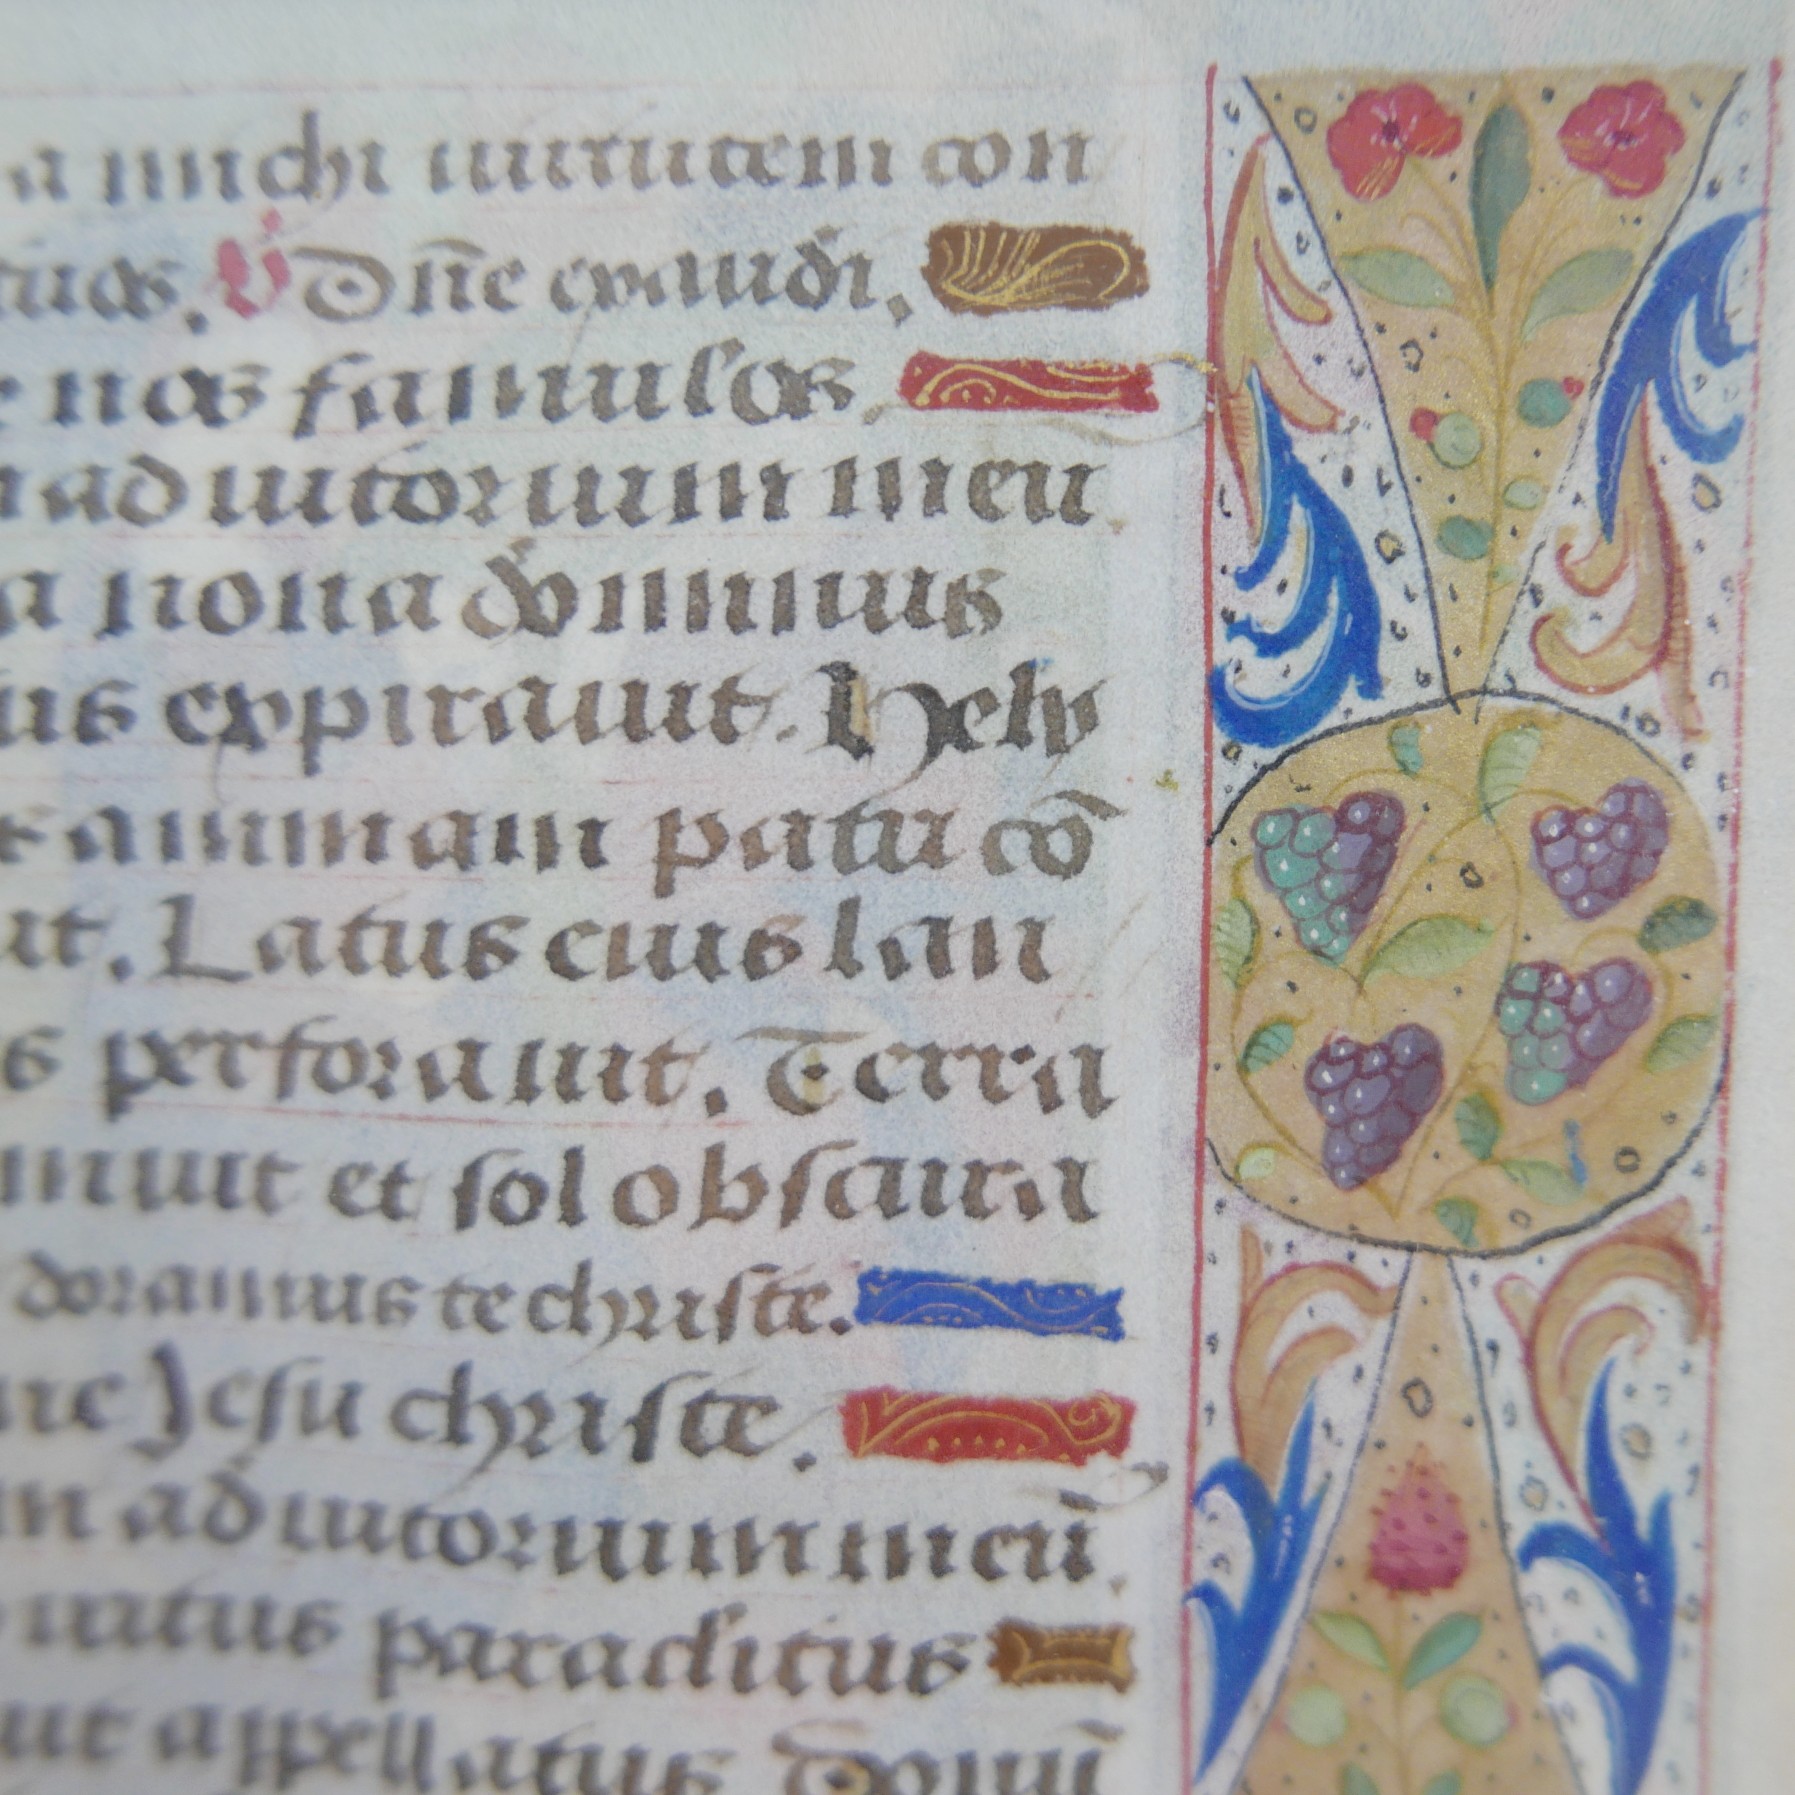 a michi uirtutem con
tuos. V Dñe exaudi.
nos famulos
adiutorium meu
a nona dominus
us expirauit. Hely
animam patri cō
ut. Latus eius lan
s perforauit. Terra
muit et sol obscura
doramus te christe.
ne Jesu christe.
m adiutorium meū.
ritus paraclitus
ut appellatus donū